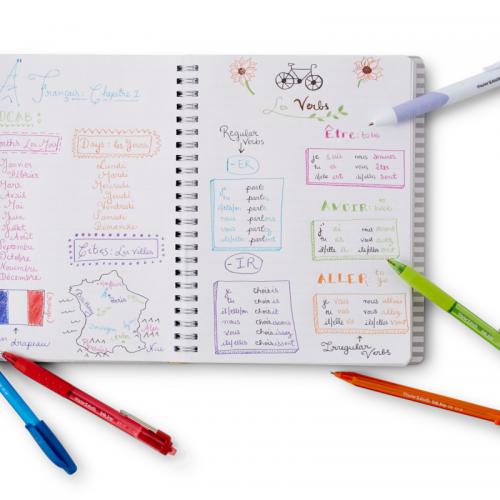 Français: Chapitre 1
VOCAB:
Days: les Jours
Janvier
Février
Mars
Avril
Mai
Juin
Juillet
Août
Septembre
Octobre
Novembre
Décembre
Lundi
Mardi
Mercredi
Jeudi
Vendredi
Samedi
Dimanche
Cities: Les Villes
Paris
Nice
drapeau
Les Verbs
Regular
Verbs
-ER
j' parle
tu parles
il/elle/on parle
nous parlons
vous parlez
ils/elles parlent
-IR
je choisis
tu choisis
il/elle/on choisit
nous choisissons
vous choisissez
ils/elles choisissent
Être: to be
je suis nous sommes
tu es vous êtes
il/elle est ils/elles sont
AVOIR: to have
j' ai nous avons
tu as vous avez
il/elle a ils/elles ont
ALLER: to go
je vais nous allons
tu vas vous allez
il/elle va ils/elles vont
Irregular
Verbs